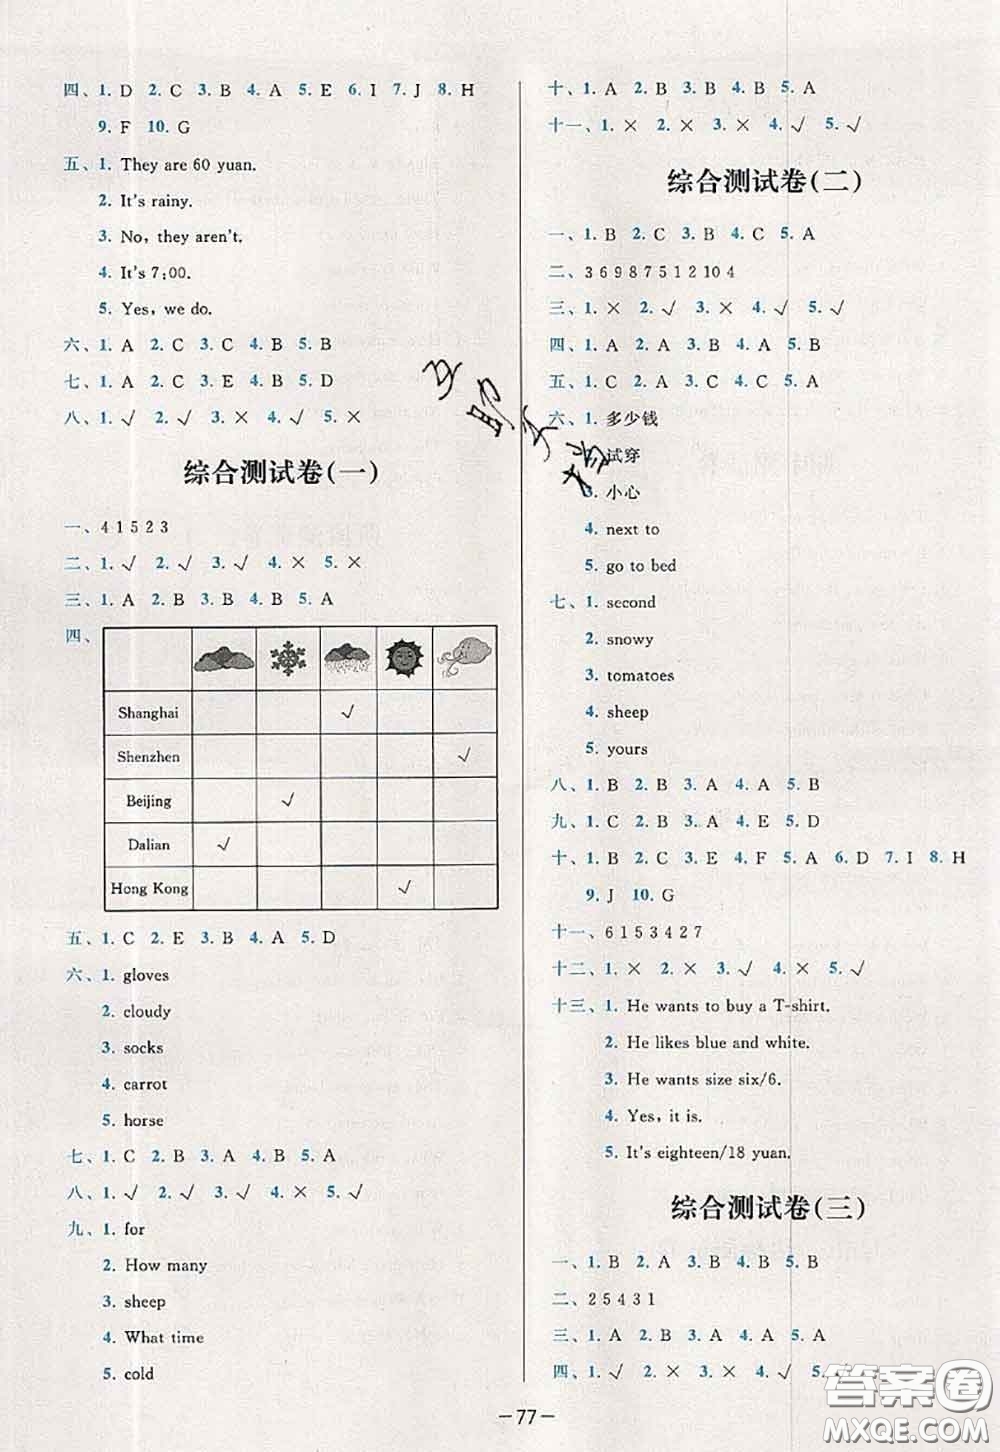 四、1. D 2. C 3. B 4. A 5. E 6. I 7. J 8. H
9. F 10. G
五、1. They are 60 yuan.
2. It's rainy.
3. No, they aren't.
4. It's 7:00.
5. Yes, we do.
六、1. A 2. C 3. C 4. B 5. B
七、1. A 2. C 3. E 4. B 5. D
八、1. √ 2. √ 3. × 4. √ 5. ×
综合测试卷(一)
一、4 1 5 2 3
二、1. √ 2. √ 3. √ 4. × 5. ×
三、1. A 2. B 3. B 4. B 5. A
四、
Shanghai √
Shenzhen √
Beijing √
Dalian √
Hong Kong √
五、1. C 2. E 3. B 4. A 5. D
六、1. gloves
2. cloudy
3. socks
4. carrot
5. horse
七、1. C 2. B 3. A 4. B 5. A
八、1. √ 2. √ 3. √ 4. × 5. √
九、1. for
2. How many
3. sheep
4. What time
5. cold
十、1. A 2. B 3. B 4. B 5. A
十一、1. × 2. × 3. × 4. √ 5. √
综合测试卷(二)
一、1. B 2. C 3. B 4. C 5. A
二、3 6 9 8 7 5 1 2 10 4
三、1. × 2. √ 3. × 4. √ 5. √
四、1. B 2. A 3. A 4. B 5. A
五、1. C 2. A 3. C 4. C 5. A
六、1. 多少钱
2. 试穿
3. 小心
4. next to
5. go to bed
七、1. second
2. snowy
3. tomatoes
4. sheep
5. yours
八、1. B 2. B 3. A 4. A 5. B
九、1. C 2. B 3. A 4. E 5. D
十、1. B 2. C 3. E 4. F 5. A 6. D 7. I 8. H
9. J 10. G
十一、6 1 5 3 4 2 7
十二、1. × 2. × 3. √ 4. × 5. √
十三、1. He wants to buy a T-shirt.
2. He likes blue and white.
3. He wants size six/6.
4. Yes, it is.
5. It's eighteen/18 yuan.
综合测试卷(三)
一、1. B 2. A 3. B 4. B 5. B
二、2 5 4 3 1
三、1. A 2. B 3. A 4. B 5. A
四、1. √ 2. × 3. × 4. √ 5. √
－77－
答案圈
MXQE.COM